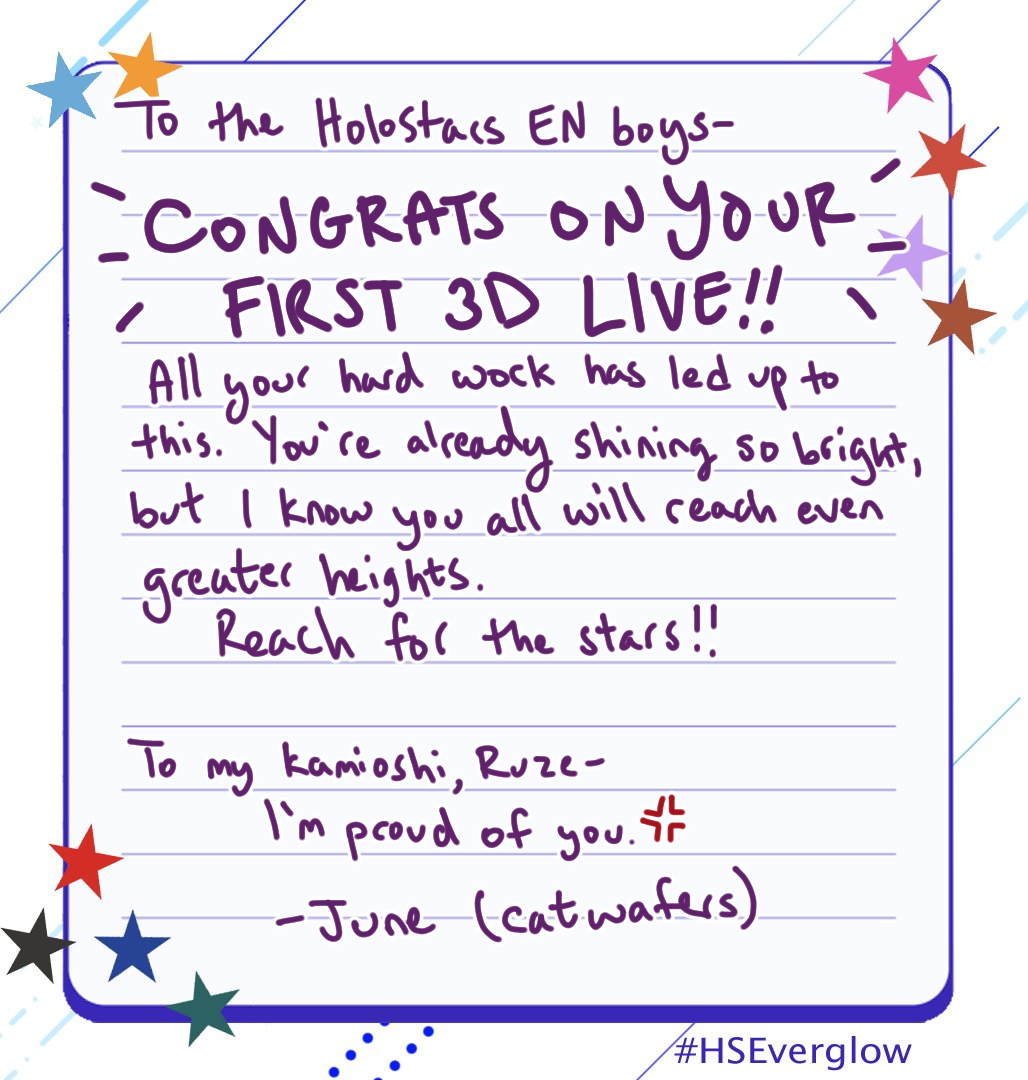 To the Holostars EN boys-
CONGRATS ON YOUR
FIRST 3D LIVE!!
All your hard work has led up to
this. You're already shining so bright,
but I know you all will reach even
greater heights.
Reach for the stars!!
To my kamioshi, Ruze-
I'm proud of you.
-June (catwafers)
#HSEverglow